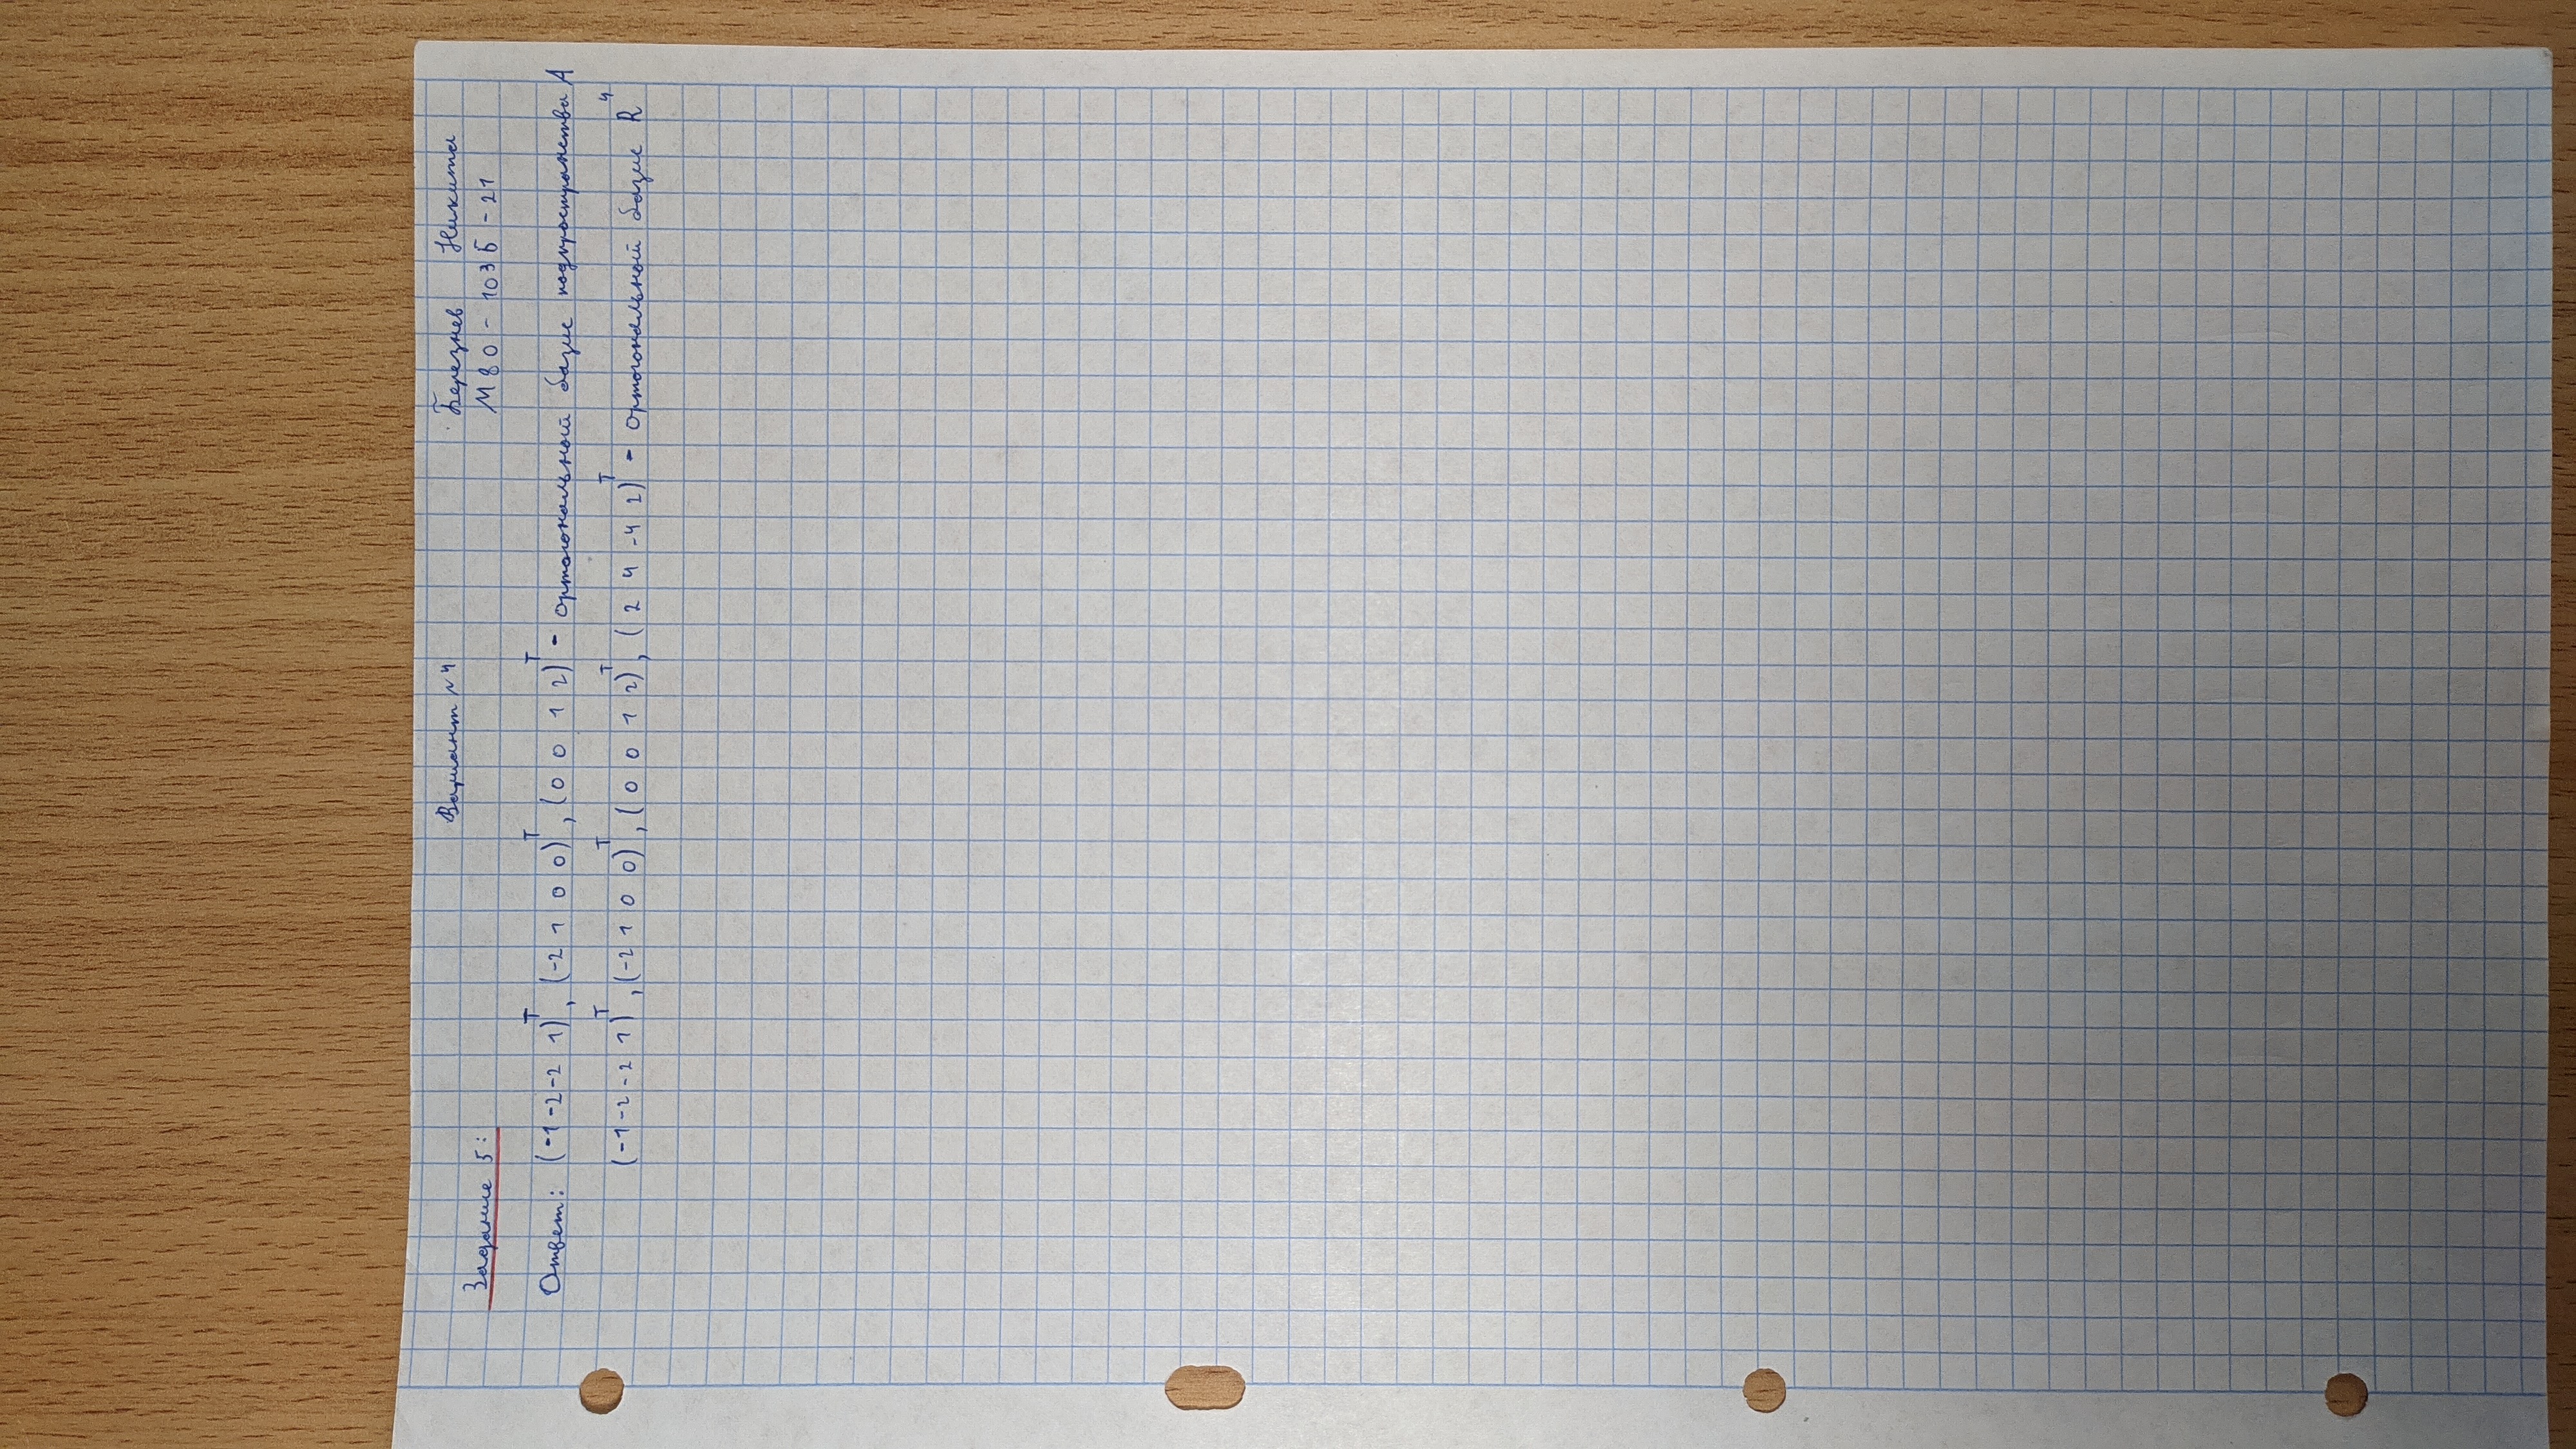 Вариант №4
Березнев Никита
Задание 5:
М80-103Б-21
Ответ: (-1 -2 -2 1)ᵀ, (-2 1 0 0)ᵀ, (0 0 1 2)ᵀ - ортогональный базис подпространства A
(-1 -2 -2 1)ᵀ, (-2 1 0 0)ᵀ, (0 0 1 2)ᵀ, (2 4 -4 2)ᵀ - ортогональный базис R⁴